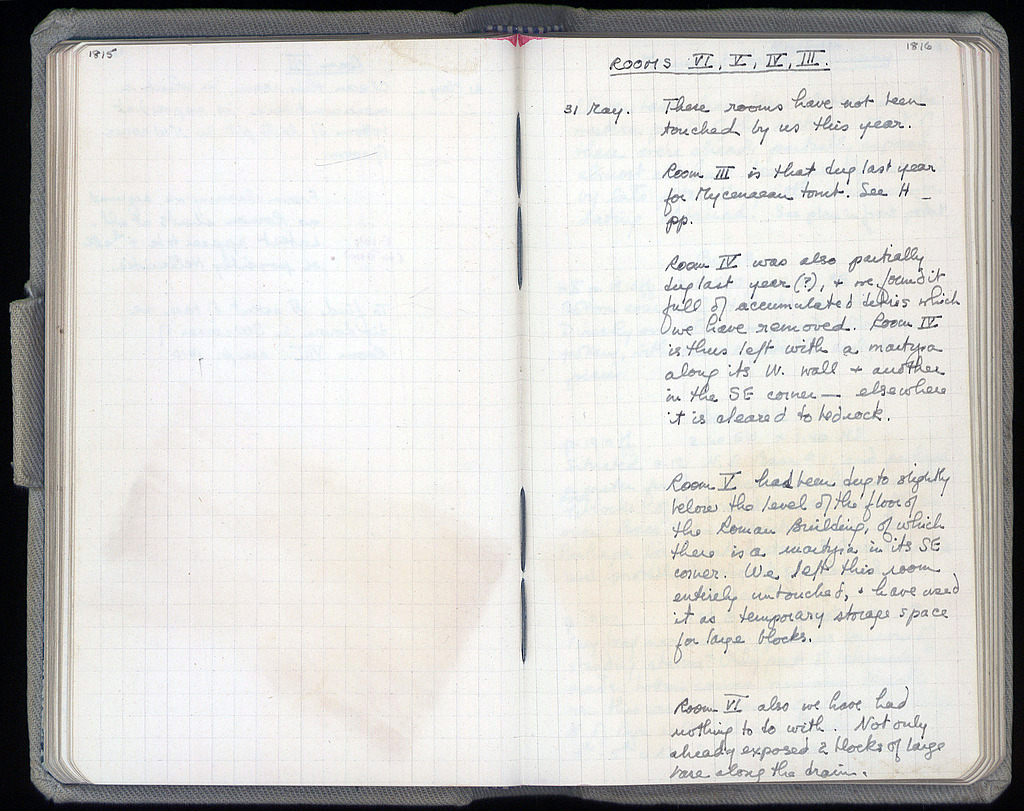 1815
1816
ROOMS VI, V, IV, III.
31 May. These rooms have not been
touched by us this year.
Room III is that dug last year
for Mycenaean tomb. See H _
pp.
Room IV was also partially
dug last year (?), + we found it
full of accumulated debris which
we have removed. Room IV
is thus left with a martyra
along its W. wall + another
in the SE corner — elsewhere
it is cleared to bedrock.
Room V had been dug to slightly
below the level of the floor of
the Roman Building, of which
there is a martyra in its SE
corner. We left this room
entirely untouched, + have used
it as temporary storage space
for large blocks.
Room VI also we have had
nothing to do with. Not only
already exposed 2 blocks of large
base along the drain.